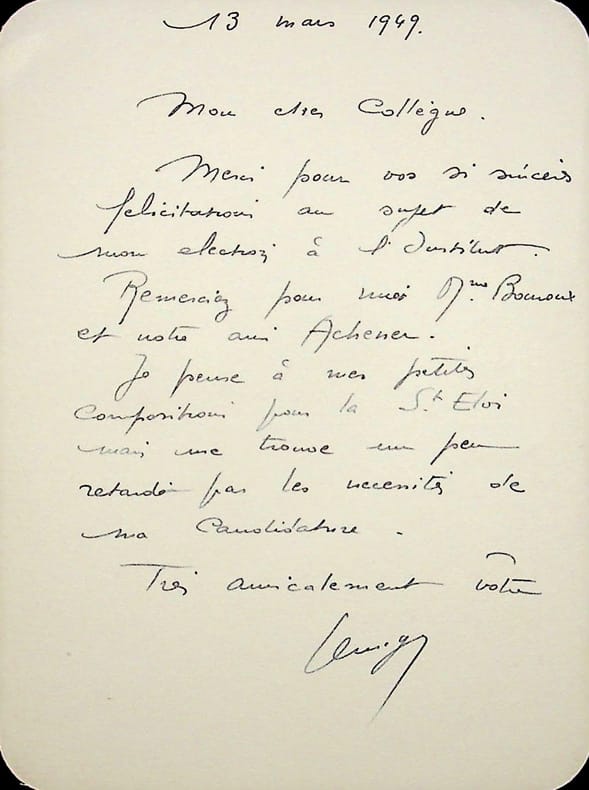 13 mars 1949.
Mon cher Collègue.
Merci pour vos si sincères
félicitations au sujet de
mon election à l'Institut.
Remerciez pour moi Mme Bouroux
et notre ami Achener.
Je pense à mes petites
compositions pour la St Eloi
mais me trouve un peu
retardé par les necessités de
ma Candidature.
Très amicalement vôtre